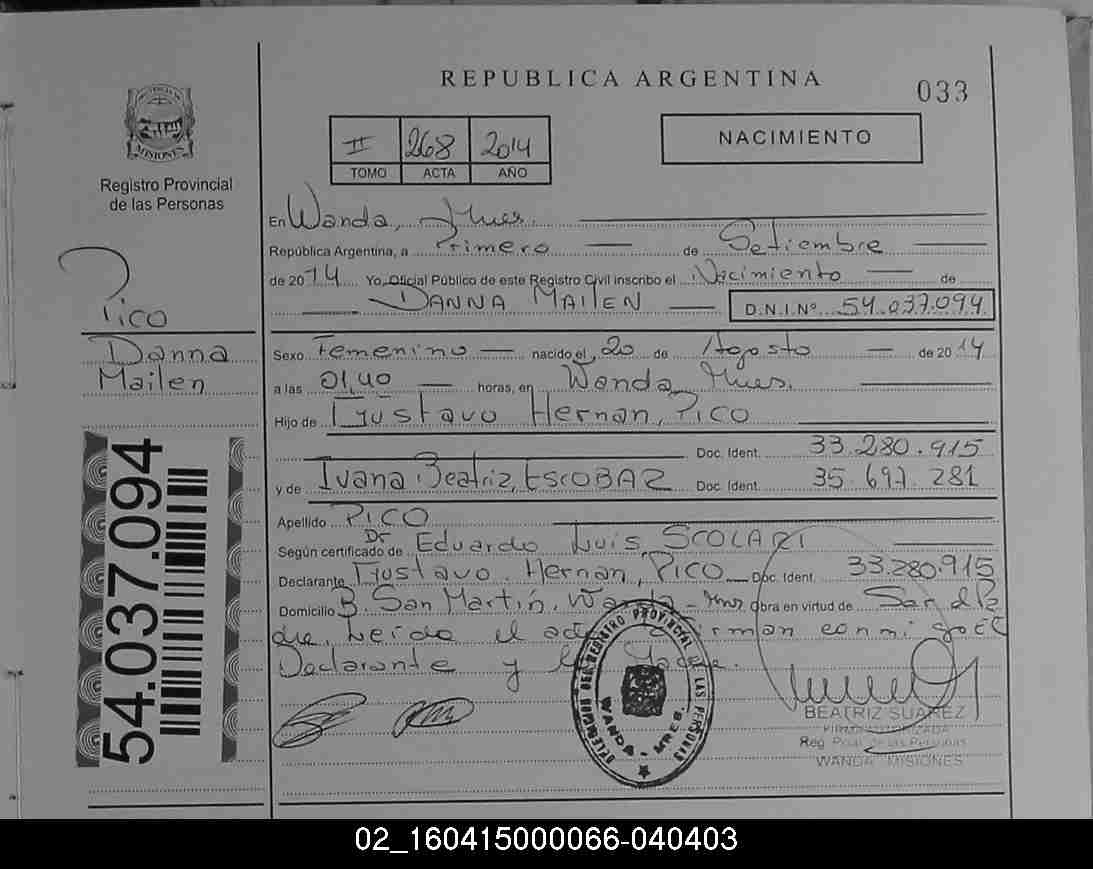 REPUBLICA ARGENTINA
033
NACIMIENTO
II 268 2014
TOMO ACTA AÑO
MISIONES
Registro Provincial
de las Personas
Pico
Danna
Mailen
54.037.094
En Wanda, Mnes.
República Argentina, a Primero de Setiembre
de 2014 Yo, Oficial Público de este Registro Civil inscribo el Nacimiento de
DANNA MAILEN D.N.I.Nº 54.037.094
Sexo Femenino nacido el 20 de Agosto de 2014
a las 01,40 horas, en Wanda, Mnes.
Hijo de Gustavo Hernan, Pico
Doc. Ident. 33.280.915
y de Ivana Beatriz, ESCOBAR Doc. Ident. 35.697.281
Apellido PICO
Según certificado de Dr Eduardo Luis SCOLARI
Declarante Gustavo Hernan, Pico Doc. Ident. 33.280.915
Domicilio B. San Martín, Wanda - Mnes Obra en virtud de
Leida el acta firman conmigo el
Declarante y la
REGISTRO PROVINCIAL DE LAS PERSONAS
WANDA - MNES.
BEATRIZ SUAREZ
FIRMA AUTORIZADA
Reg. Pcial. de las Personas
WANDA MISIONES
02_160415000066-040403